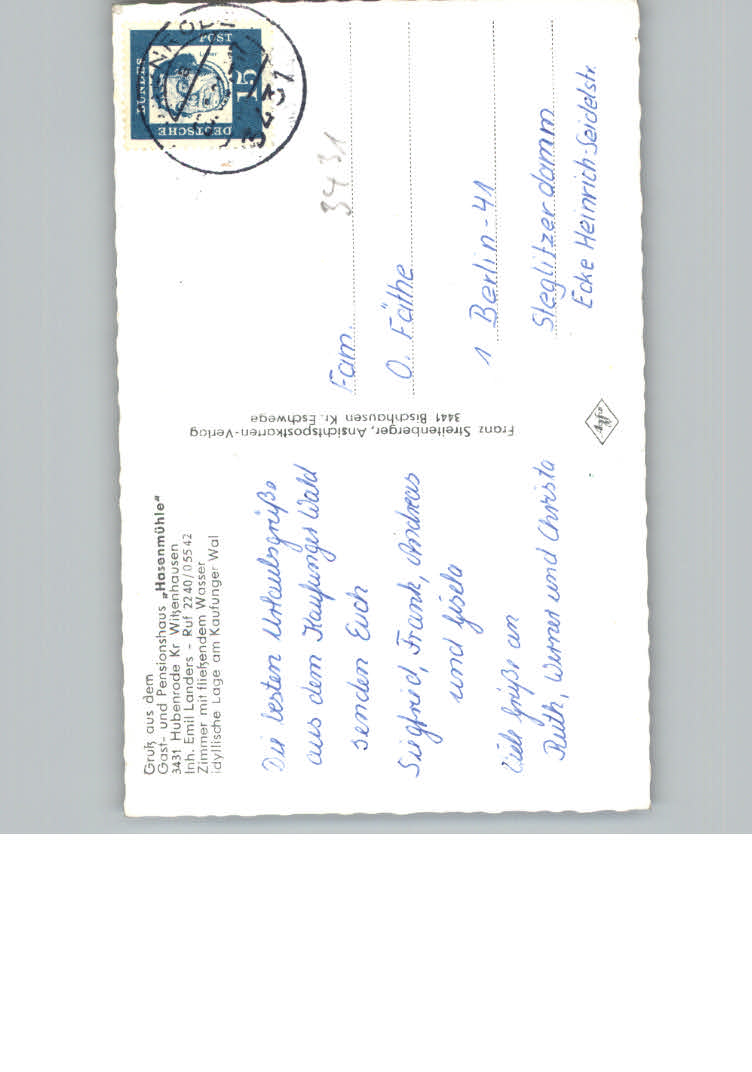 Gruß aus dem
Gast- und Pensionshaus „Hasenmühle"
3431 Hubenrode Kr Witzenhausen
Inh. Emil Landers - Ruf 2240/05542
Zimmer mit fließendem Wasser
idyllische Lage am Kaufunger Wal
Die besten Urlaubsgrüße
aus dem Kaufunger Wald
senden Euch
Siegfried, Frank, Andreas
und Gisela
Viele Grüße an
Ruth, Werner und Christa
Franz Streitenberger, Ansichtspostkarten-Verlag
3441 Bischhausen Kr. Eschwege
Agfa
DEUTSCHE
BUNDES
POST
15
3431
3431
Fam.
O. Fäthe
1 Berlin-41
Steglitzerdamm
Ecke Heinrich-Seidelstr.